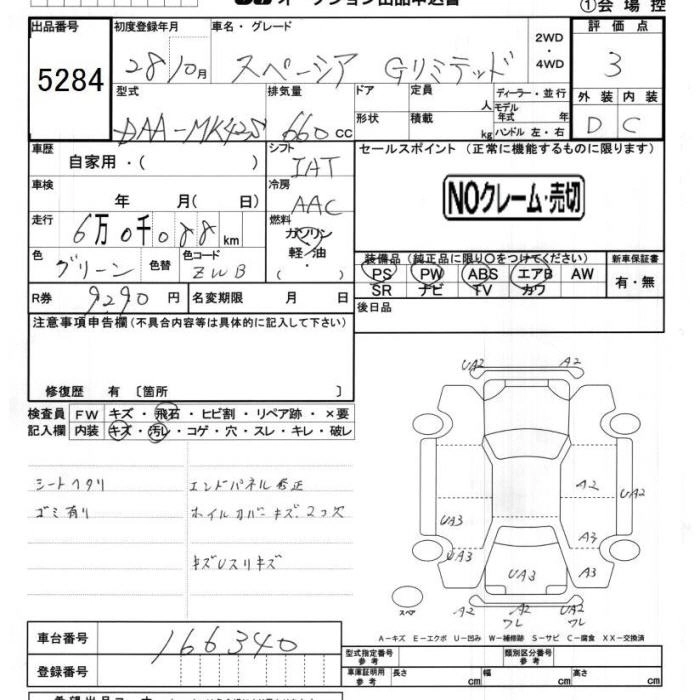 ①会 場 控
出品番号 初度登録年月 車名・グレード 2WD ・ 4WD 評 価 点
5284 28/10月 スペーシア Gリミテッド 3
型式 排気量 ドア 定員 人 ディーラー・並行 外 装 内 装
DAA-MK42S 660 cc 形状 積載 kg モデル年式 年 ハンドル 左・右 D C
車歴 自家用・( ) シフト IAT セールスポイント (正常に機能するものに限ります)
車検 年 月( 日) 冷房 AAC NOクレーム・売切
走行 6万0千088km 燃料 ガソリン 軽油 ・( )
色 グリーン 色替 色コード ZWB
装備品 (純正品に限り○をつけてください) 新車保証書
PS PW ABS エアB AW 有・無
SR ナビ TV カワ
R券 9290 円 名変期限 月 日 後日品
注意事項申告欄(不具合内容等は具体的に記入して下さい)
修復歴 有 〔箇所 〕
検査員 FW キズ・飛石・ヒビ割・リペア跡・×要
記入欄 内装 キズ・汚レ・コゲ・穴・スレ・キレ・破レ
シートヘタリ エンドパネル修正
ゴミ有り ホイルカバーキズ 2つ欠
キズUスリキズ
UA2 A2
A2 UA2
UA3 A3
UA3 UA3 A3
スペア A2 A2 ワレ UA2 ワレ
A-キズ E-エクボ U-凹み W-補修跡 S-サビ C-腐食 XX-交換済
車台番号 166340
型式指定番号 参考 類別区分番号 参考
登録番号 車庫証明用 参考 長さ cm 幅 cm 高さ cm